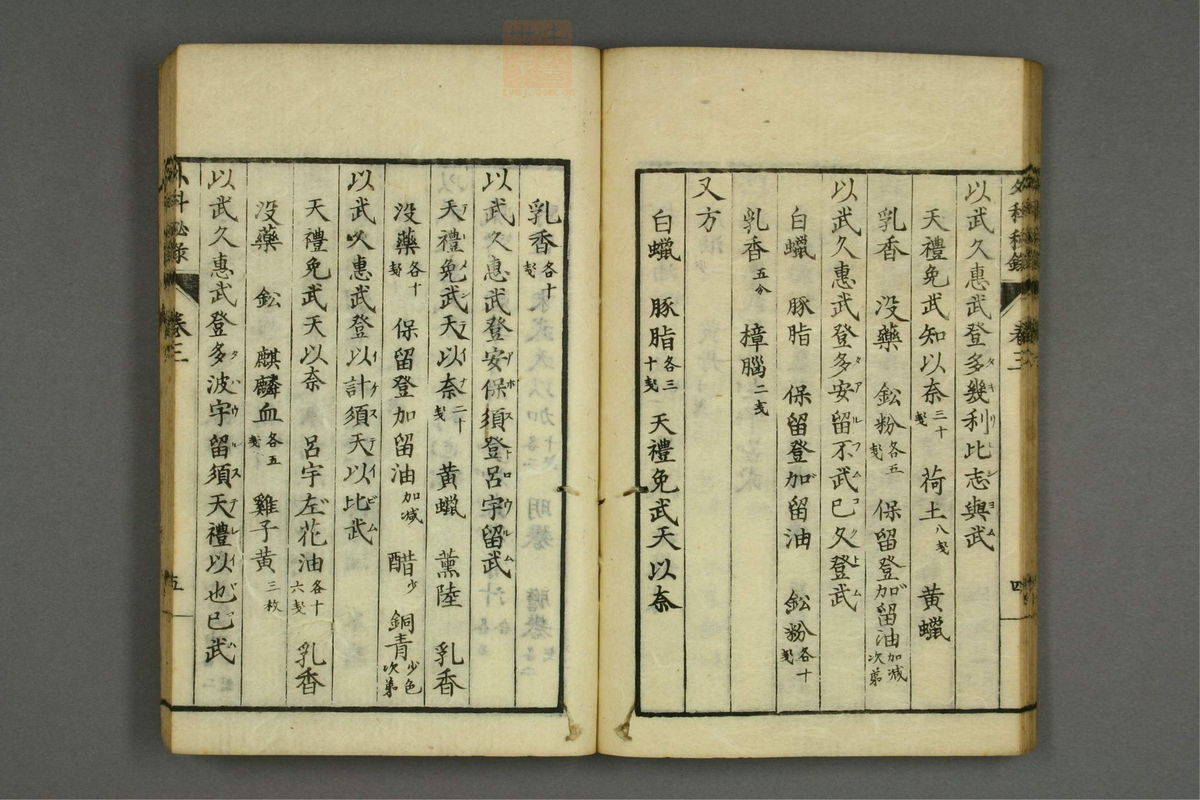 外科秘録 卷三 四
以武久惠武登多幾利比志與武
天禮免武知以奈三十戔 荷土八戔 黄蠟
乳香 没藥 鈆粉各五戔 保留登加留油加减次第
以武久惠武登多安留不武已久登武
白蠟 豚脂 保留登加留油 鈆粉各十戔
乳香五分 樟腦二戔
又方
白蠟 豚脂各三十戔 天禮免武天以奈
乳香各十戔
以武久惠武登安保須登呂宇留武
天禮免武天以奈二十戔 黄蠟 薰陸 乳香
没藥各十戔 保留登加留油加减 醋少 銅青少色次第
以武久惠武登以計須天以比武
天禮免武天以奈 呂宇左花油各十六戔 乳香
没藥 鈆 麒麟血各五戔 雞子黄三枚
以武久惠武登多波宇留須天禮以也已武
外科秘録 卷三 五